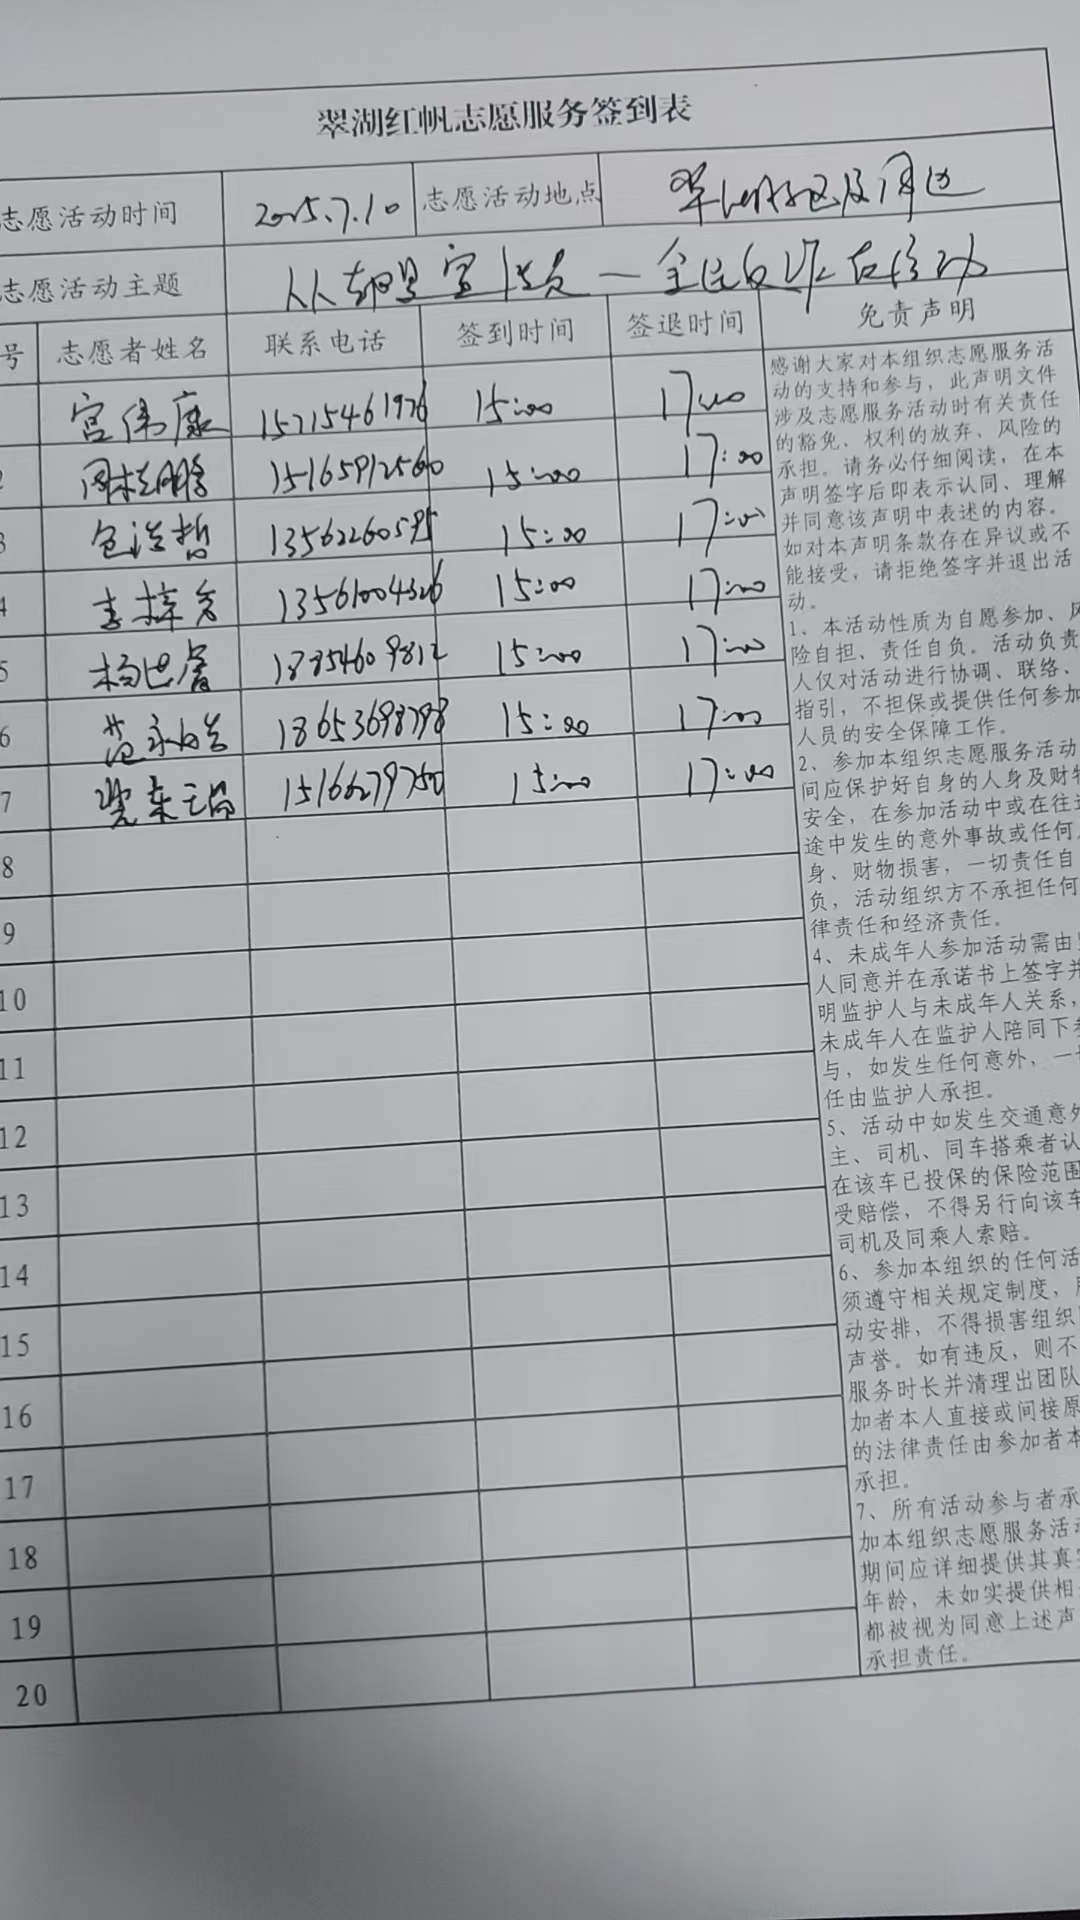 翠湖红帆志愿服务签到表
志愿活动时间 2025.7.10 志愿活动地点 翠湖社区及周边
志愿活动主题 全民反诈在行动
号 志愿者姓名 联系电话 签到时间 签退时间 免责声明
宫伟康 15715461976 15:00 17:00
2 15165912560 15:00 17:00
3 包浩哲 13562260595 15:00 17:00
4 李梓 13561004326 15:00 17:00
5 杨世睿 18854609812 15:00 17:00
6 范永 18653698798 15:00 17:00
7 15166279750 15:00 17:00
8
9
10
11
12
13
14
15
16
17
18
19
20
感谢大家对本组织志愿服务活
动的支持和参与，此声明文件
涉及志愿服务活动时有关责任
的豁免、权利的放弃、风险的
承担。请务必仔细阅读，在本
声明签字后即表示认同、理解
并同意该声明中表述的内容。
如对本声明条款存在异议或不
能接受，请拒绝签字并退出活
动。
1、本活动性质为自愿参加、风
险自担、责任自负。活动负责
人仅对活动进行协调、联络、
指引，不担保或提供任何参加
人员的安全保障工作。
2、参加本组织志愿服务活动
间应保护好自身的人身及财物
安全，在参加活动中或在往返
途中发生的意外事故或任何人
身、财物损害，一切责任自
负，活动组织方不承担任何
律责任和经济责任。
4、未成年人参加活动需由监
人同意并在承诺书上签字并
明监护人与未成年人关系，
未成年人在监护人陪同下参
与，如发生任何意外，一切
任由监护人承担。
5、活动中如发生交通意外
主、司机、同车搭乘者认
在该车已投保的保险范围
受赔偿，不得另行向该车
司机及同乘人索赔。
6、参加本组织的任何活
须遵守相关规定制度，服
动安排，不得损害组织
声誉。如有违反，则不
服务时长并清理出团队
加者本人直接或间接原
的法律责任由参加者本
承担。
7、所有活动参与者承
加本组织志愿服务活动
期间应详细提供其真实
年龄，未如实提供相
都被视为同意上述声
承担责任。